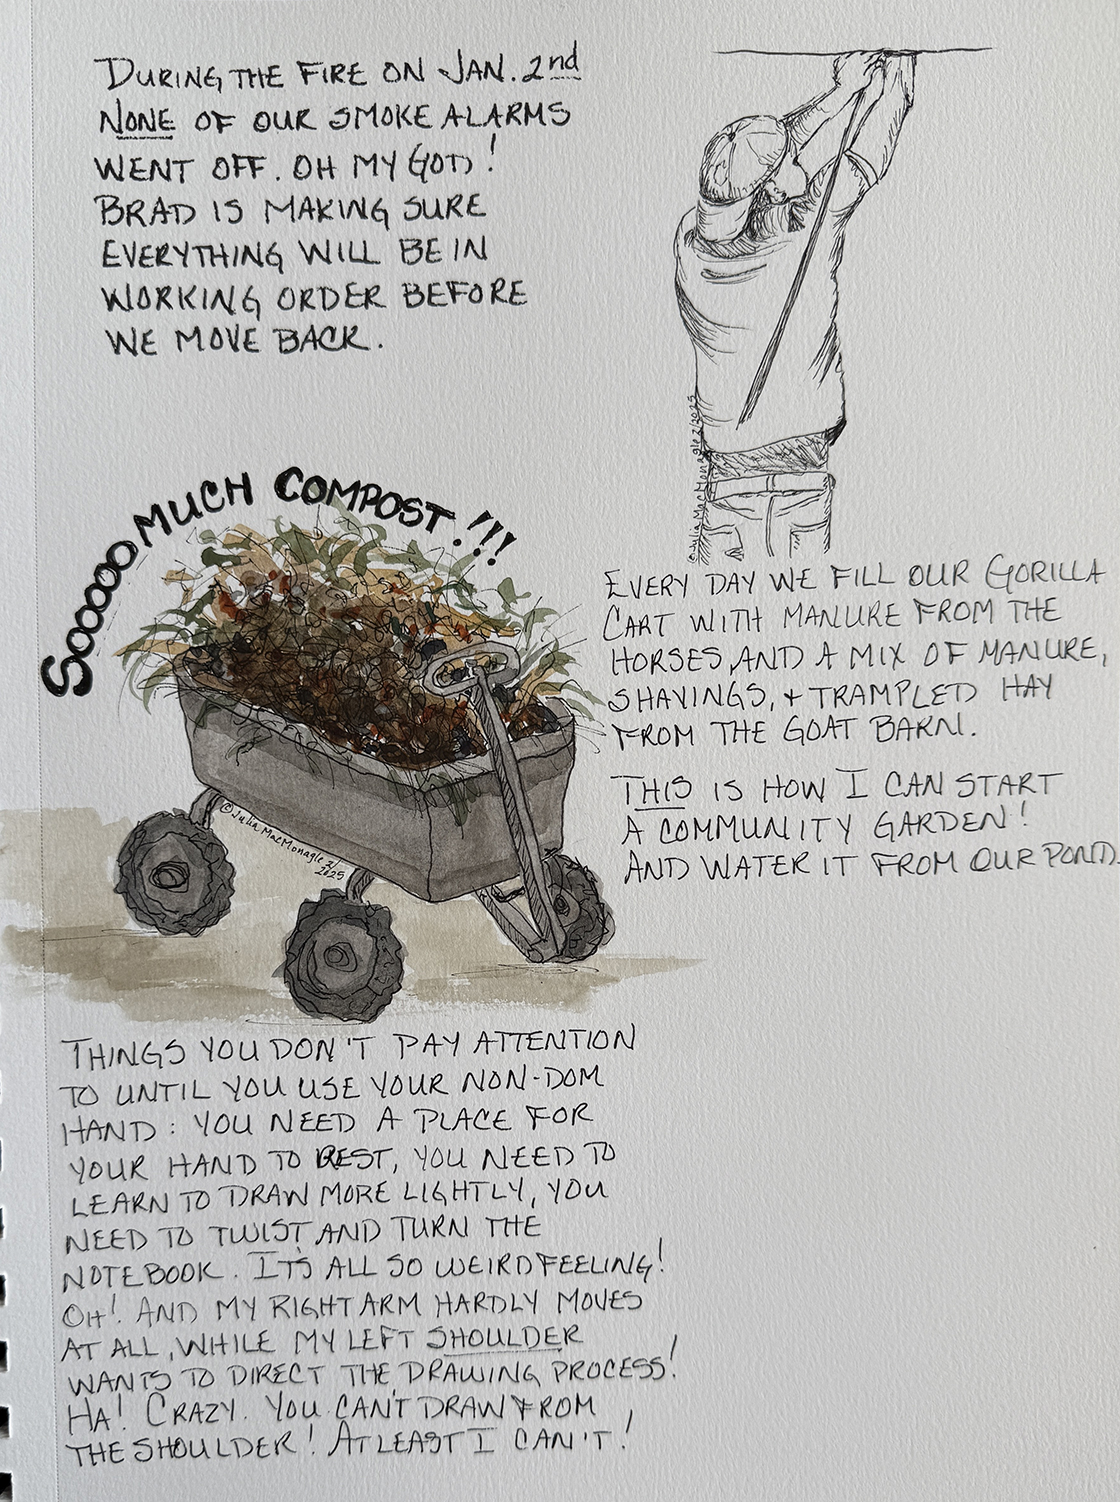 DURING THE FIRE ON JAN. 2nd
NONE OF OUR SMOKE ALARMS
WENT OFF. OH MY GOD!
BRAD IS MAKING SURE
EVERYTHING WILL BE IN
WORKING ORDER BEFORE
WE MOVE BACK.
©Julia MacMonagle 2/2025
SOOOOO MUCH COMPOST!!!
©Julia MacMonagle 2/
2025
EVERY DAY WE FILL OUR GORILLA
CART WITH MANURE FROM THE
HORSES, AND A MIX OF MANURE,
SHAVINGS, + TRAMPLED HAY
FROM THE GOAT BARN.
THIS IS HOW I CAN START
A COMMUNITY GARDEN!
AND WATER IT FROM OUR POND.
THINGS YOU DON'T PAY ATTENTION
TO UNTIL YOU USE YOUR NON-DOM
HAND: YOU NEED A PLACE FOR
YOUR HAND TO REST, YOU NEED TO
LEARN TO DRAW MORE LIGHTLY, YOU
NEED TO TWIST AND TURN THE
NOTEBOOK. IT'S ALL SO WEIRD FEELING!
OH! AND MY RIGHT ARM HARDLY MOVES
AT ALL, WHILE MY LEFT SHOULDER
WANTS TO DIRECT THE DRAWING PROCESS!
HA! CRAZY. YOU CAN'T DRAW FROM
THE SHOULDER! AT LEAST I CAN'T!